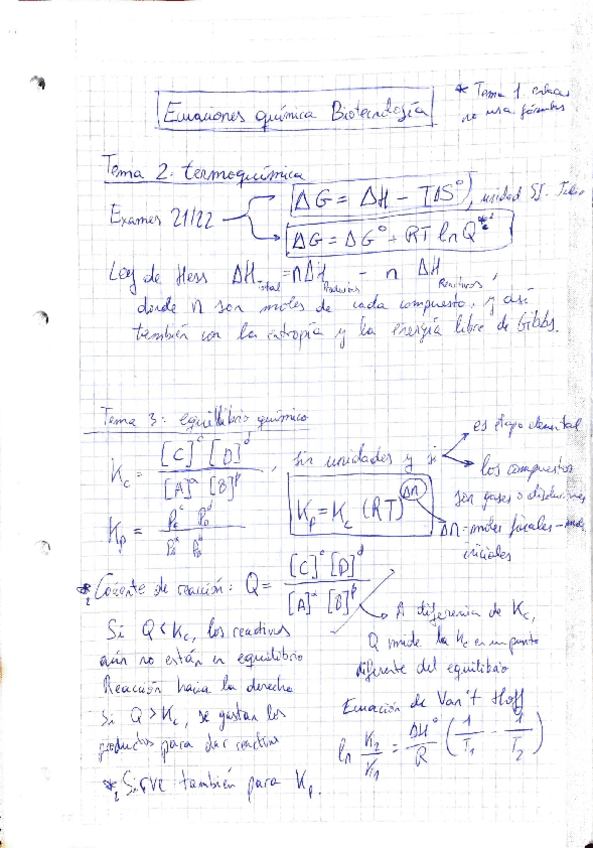 Ecuaciones química Biotecnología
* Tema 1
no usa fórmulas
Tema 2: termoquímica
Examen 21/22
ΔG = ΔH - TΔS°, unidad SI:
ΔG = ΔG° + RT ln Q *2
Ley de Hess ΔH Total = nΔH Productos - n ΔH Reactivos,
donde n son moles de cada compuesto, y así
también con la entropía y la energía libre de Gibbs.
Tema 3: equilibrio químico
Kc = [C]^c [D]^d / [A]^a [B]^b, sin unidades y si
es etapa elemental
los compuestos
son gases o disoluciones
Kp = Kc (RT)^Δn
Δn = moles finales -
iniciales
Kp =
*2 Cociente de reacción: Q = [C]^c [D]^d / [A]^a [B]^b
A diferencia de Kc,
Q mide la Kc en un punto
diferente del equilibrio
Si Q < Kc, los reactivos
aún no están en equilibrio
Reacción hacia la derecha
Si Q > Kc, se gastan los
productos para dar reactivos
*2 Sirve también para Kp.
Ecuación de Van't Hoff
ln K2/K1 = ΔH°/R (1/T1 - 1/T2)